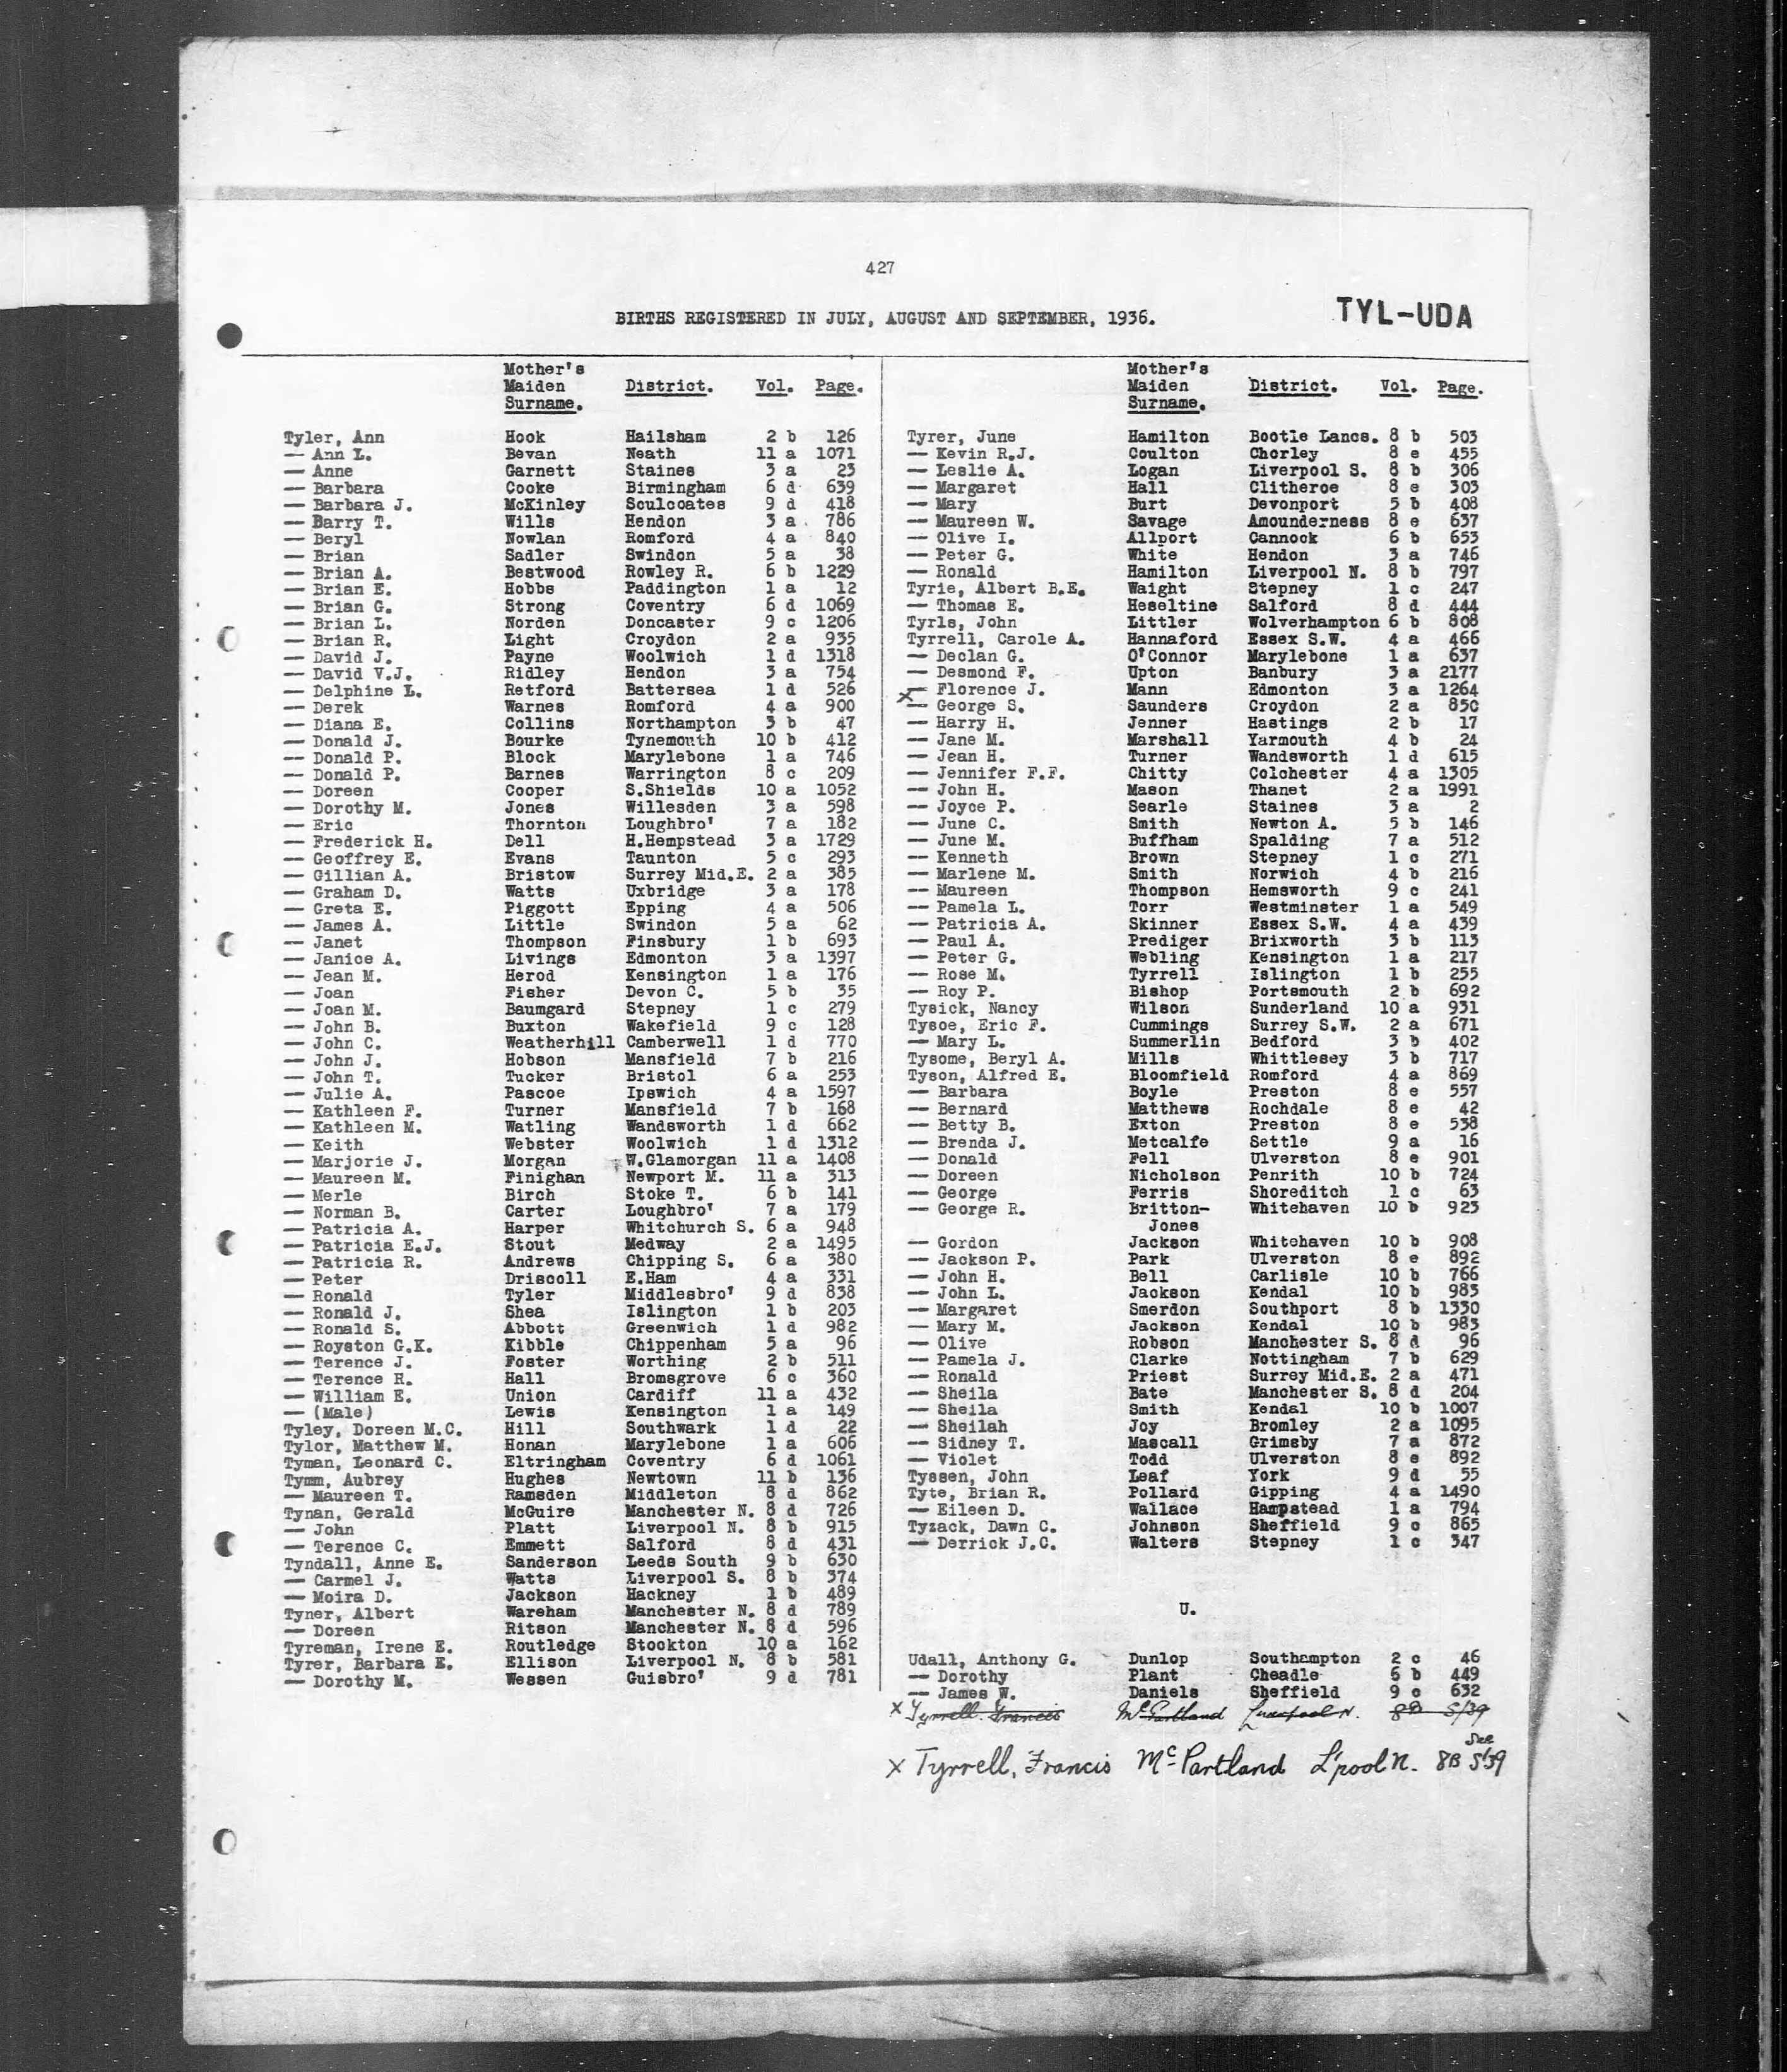 427
BIRTHS REGISTERED IN JULY, AUGUST AND SEPTEMBER, 1936.
TYL-UDA
Mother's
Maiden District. Vol. Page.
Surname.
Tyler, Ann Hook Hailsham 2 b 126
— Ann L. Bevan Neath 11 a 1071
— Anne Garnett Staines 3 a 23
— Barbara Cooke Birmingham 6 d 639
— Barbara J. McKinley Sculcoates 9 d 418
— Barry T. Wills Hendon 3 a 786
— Beryl Nowlan Romford 4 a 840
— Brian Sadler Swindon 5 a 38
— Brian A. Bestwood Rowley R. 6 b 1229
— Brian E. Hobbs Paddington 1 a 12
— Brian G. Strong Coventry 6 d 1069
— Brian L. Norden Doncaster 9 c 1206
— Brian R. Light Croydon 2 a 935
— David J. Payne Woolwich 1 d 1318
— David V.J. Ridley Hendon 3 a 754
— Delphine L. Retford Battersea 1 d 526
— Derek Warnes Romford 4 a 900
— Diana E. Collins Northampton 3 b 47
— Donald J. Bourke Tynemouth 10 b 412
— Donald P. Block Marylebone 1 a 746
— Donald P. Barnes Warrington 8 c 209
— Doreen Cooper S.Shields 10 a 1052
— Dorothy M. Jones Willesden 3 a 598
— Eric Thornton Loughbro' 7 a 182
— Frederick H. Dell H.Hempstead 3 a 1729
— Geoffrey E. Evans Taunton 5 c 293
— Gillian A. Bristow Surrey Mid.E. 2 a 385
— Graham D. Watts Uxbridge 3 a 178
— Greta E. Piggott Epping 4 a 506
— James A. Little Swindon 5 a 62
— Janet Thompson Finsbury 1 b 693
— Janice A. Livings Edmonton 3 a 1397
— Jean M. Herod Kensington 1 a 176
— Joan Fisher Devon C. 5 b 35
— Joan M. Baumgard Stepney 1 c 279
— John B. Buxton Wakefield 9 c 128
— John C. Weatherhill Camberwell 1 d 770
— John J. Hobson Mansfield 7 b 216
— John T. Tucker Bristol 6 a 253
— Julie A. Pascoe Ipswich 4 a 1597
— Kathleen F. Turner Mansfield 7 b 168
— Kathleen M. Watling Wandsworth 1 d 662
— Keith Webster Woolwich 1 d 1312
— Marjorie J. Morgan W.Glamorgan 11 a 1408
— Maureen M. Finighan Newport M. 11 a 313
— Merle Birch Stoke T. 6 b 141
— Norman B. Carter Loughbro' 7 a 179
— Patricia A. Harper Whitchurch S. 6 a 948
— Patricia E.J. Stout Medway 2 a 1495
— Patricia R. Andrews Chipping S. 6 a 380
— Peter Driscoll E.Ham 4 a 331
— Ronald Tyler Middlesbro' 9 d 838
— Ronald J. Shea Islington 1 b 203
— Ronald S. Abbott Greenwich 1 d 982
— Royston G.K. Kibble Chippenham 5 a 96
— Terence J. Foster Worthing 2 b 511
— Terence R. Hall Bromsgrove 6 c 360
— William E. Union Cardiff 11 a 432
— (Male) Lewis Kensington 1 a 149
Tyley, Doreen M.C. Hill Southwark 1 d 22
Tylor, Matthew M. Honan Marylebone 1 a 606
Tyman, Leonard C. Eltringham Coventry 6 d 1061
Tymm, Aubrey Hughes Newtown 11 b 136
— Maureen T. Ramsden Middleton 8 d 862
Tynan, Gerald McGuire Manchester N. 8 d 726
— John Platt Liverpool N. 8 b 915
— Terence C. Emmett Salford 8 d 431
Tyndall, Anne E. Sanderson Leeds South 9 b 630
— Carmel J. Watts Liverpool S. 8 b 374
— Moira D. Jackson Hackney 1 b 489
Tyner, Albert Wareham Manchester N. 8 d 789
— Doreen Ritson Manchester N. 8 d 596
Tyreman, Irene E. Routledge Stockton 10 a 162
Tyrer, Barbara E. Ellison Liverpool N. 8 b 581
— Dorothy M. Wessen Guisbro' 9 d 781
Mother's
Maiden District. Vol. Page.
Surname.
Tyrer, June Hamilton Bootle Lancs. 8 b 503
— Kevin R.J. Coulton Chorley 8 e 455
— Leslie A. Logan Liverpool S. 8 b 306
— Margaret Hall Clitheroe 8 e 303
— Mary Burt Devonport 5 b 408
— Maureen W. Savage Amounderness 8 e 637
— Olive I. Allport Cannock 6 b 653
— Peter G. White Hendon 3 a 746
— Ronald Hamilton Liverpool N. 8 b 797
Tyrie, Albert B.E. Waight Stepney 1 c 247
— Thomas E. Heseltine Salford 8 d 444
Tyrls, John Littler Wolverhampton 6 b 808
Tyrrell, Carole A. Hannaford Essex S.W. 4 a 466
— Declan G. O'Connor Marylebone 1 a 637
— Desmond F. Upton Banbury 3 a 2177
— Florence J. Mann Edmonton 3 a 1264
x — George S. Saunders Croydon 2 a 850
— Harry H. Jenner Hastings 2 b 17
— Jane M. Marshall Yarmouth 4 b 24
— Jean H. Turner Wandsworth 1 d 615
— Jennifer F.F. Chitty Colchester 4 a 1305
— John H. Mason Thanet 2 a 1991
— Joyce P. Searle Staines 3 a 2
— June C. Smith Newton A. 5 b 146
— June M. Buffham Spalding 7 a 512
— Kenneth Brown Stepney 1 c 271
— Marlene M. Smith Norwich 4 b 216
— Maureen Thompson Hemsworth 9 c 241
— Pamela L. Torr Westminster 1 a 549
— Patricia A. Skinner Essex S.W. 4 a 439
— Paul A. Prediger Brixworth 3 b 113
— Peter G. Webling Kensington 1 a 217
— Rose M. Tyrrell Islington 1 b 255
— Roy P. Bishop Portsmouth 2 b 692
Tysick, Nancy Wilson Sunderland 10 a 931
Tysoe, Eric F. Cummings Surrey S.W. 2 a 671
— Mary L. Summerlin Bedford 3 b 402
Tysome, Beryl A. Mills Whittlesey 3 b 717
Tyson, Alfred E. Bloomfield Romford 4 a 869
— Barbara Boyle Preston 8 e 557
— Bernard Matthews Rochdale 8 e 42
— Betty B. Exton Preston 8 e 538
— Brenda J. Metcalfe Settle 9 a 16
— Donald Fell Ulverston 8 e 901
— Doreen Nicholson Penrith 10 b 724
— George Ferris Shoreditch 1 c 63
— George R. Britton- Whitehaven 10 b 923
Jones
— Gordon Jackson Whitehaven 10 b 908
— Jackson P. Park Ulverston 8 e 892
— John H. Bell Carlisle 10 b 766
— John L. Jackson Kendal 10 b 983
— Margaret Smerdon Southport 8 b 1330
— Mary M. Jackson Kendal 10 b 983
— Olive Robson Manchester S. 8 d 96
— Pamela J. Clarke Nottingham 7 b 629
— Ronald Priest Surrey Mid.E. 2 a 471
— Sheila Bate Manchester S. 8 d 204
— Sheila Smith Kendal 10 b 1007
— Sheilah Joy Bromley 2 a 1095
— Sidney T. Mascall Grimsby 7 a 872
— Violet Todd Ulverston 8 e 892
Tyssen, John Leaf York 9 d 55
Tyte, Brian R. Pollard Gipping 4 a 1490
— Eileen D. Wallace Hampstead 1 a 794
Tyzack, Dawn C. Johnson Sheffield 9 c 865
— Derrick J.C. Walters Stepney 1 c 347
U.
Udall, Anthony G. Dunlop Southampton 2 c 46
— Dorothy Plant Cheadle 6 b 449
— James W. Daniels Sheffield 9 c 632
x Tyrrell. Francis McPartland Liverpool N. 8B S/39
See
x Tyrrell, Francis McPartland L'pool N. 8B S'39